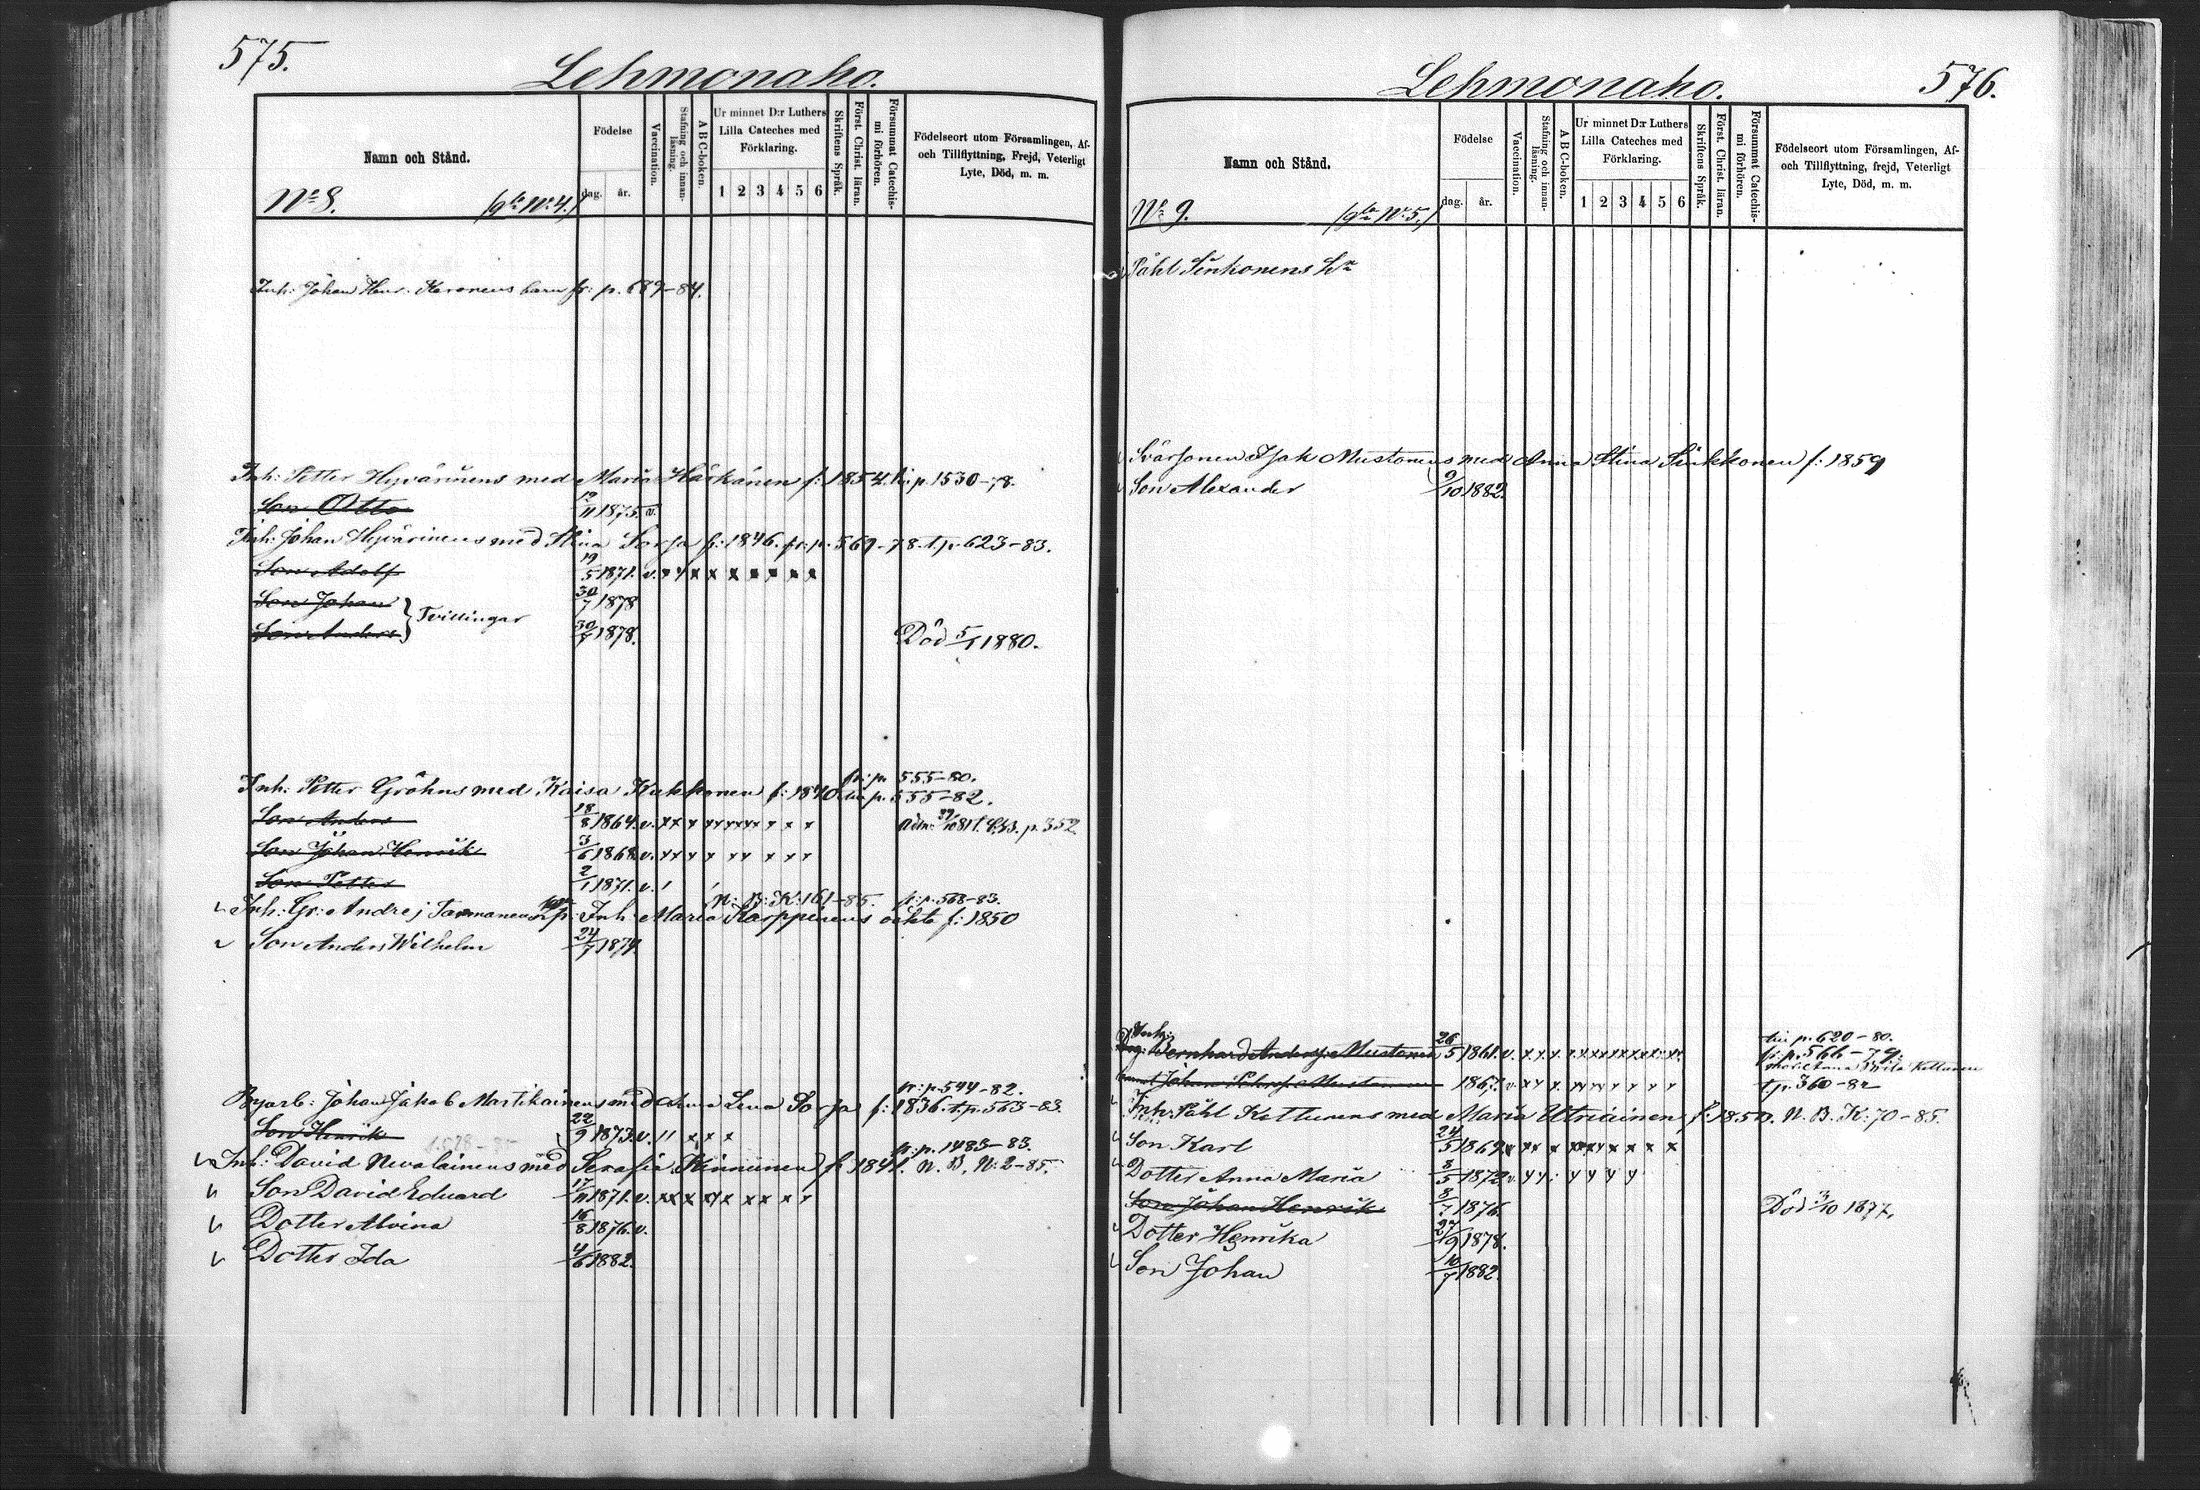 575.
Lehmonaho.
Namn och Stånd.
Födelse
dag. år.
Vaccination.
Stafning och innanläsning.
A B C-boken.
Ur minnet D:r Luthers Lilla Cateches med Förklaring.
1 2 3 4 5 6
Skriftens Språk.
Först. Christ. läran.
Försummat Catechismi förhören.
Födelseort utom Församlingen, Af- och Tillflyttning, Frejd, Veterligt Lyte, Död, m. m.
No 8. No 4.
Inh: Johan Henr. Karonens barn fr: p. 689-84.
Inh: Petter Hyvärinens med Maria Härkänen f: 1854. p. 1530-78.
Son Otto 12/11 1875. v.
Inh: Johan Hyvärinens med Stina Sorsa f: 1846. fr. p. 569-78. t. p. 623-83.
Son Adolf 19/5 1871. v. x x x x x x x x x
Son Johan 30/7 1878
Tvillingar
Son Anders 30/7 1878. Död 5/1 1880.
fr: p. 555-80.
Inh: Petter Gröhns med Kaisa Kukkonen f: 1840 p. 555-82.
Son Anders 18/8 1864. v. p. 352
Son Johan Henrik 3/6 1868. v.
Son Petter 2/1 1871. v.
N: B: K: 161-85. fr: p. 568-83.
Inh: Gr: Andrej Tarmanens Inh: Maria Karppinens oäkta f: 1850
Son Anders Wilhelm 24/7 1879.
fr: p. 544-82.
Byarb: Johan Jakob Martikainens med Anna Lena Sorsa f: 1836. t. p. 563-83.
Son Henrik 22/9 1873. v. 11 x x x
fr: p. 1483-83.
Inh: David Nevalainens med Serafia Kinnunen f: 1841. N. B. N: 2-85.
Son David Eduard 17/11 1871. v.
Dotter Alvina 16/8 1876. v.
Dotter Ida 4/6 1882.
Lehmonaho.
576.
Namn och Stånd.
Födelse
dag. år.
Vaccination.
Stafning och innanläsning.
A B C-boken.
Ur minnet D:r Luthers Lilla Cateches med Förklaring.
1 2 3 4 5 6
Skriftens Språk.
Först. Christ. läran.
Försummat Catechismi förhören.
Födelseort utom Församlingen, Af- och Tillflyttning, frejd, Veterligt Lyte, Död, m. m.
No 9. No 5.
Påhl Sinkonens
Svärsonen Isak Mustonens med Anna Stina Sinkkonen f: 1859
Son Alexander 9/10 1882.
p. 620-80.
Bernhard Andersson Mustonen 26/5 1861. v. fr: p. 566-79.
Johan Mustonen 1867. v. t. p. 360-82
Inh: Påhl Kettunens med Maria Utriainen f: 1850. N. B. K: 70-85.
Son Karl 24/5 1869.
Dotter Anna Maria 8/5 1872. v.
Son Johan Henrik 8/7 1876. Död 3/10 1877.
Dotter Henrika 27/9 1878.
Son Johan 10/7 1882.